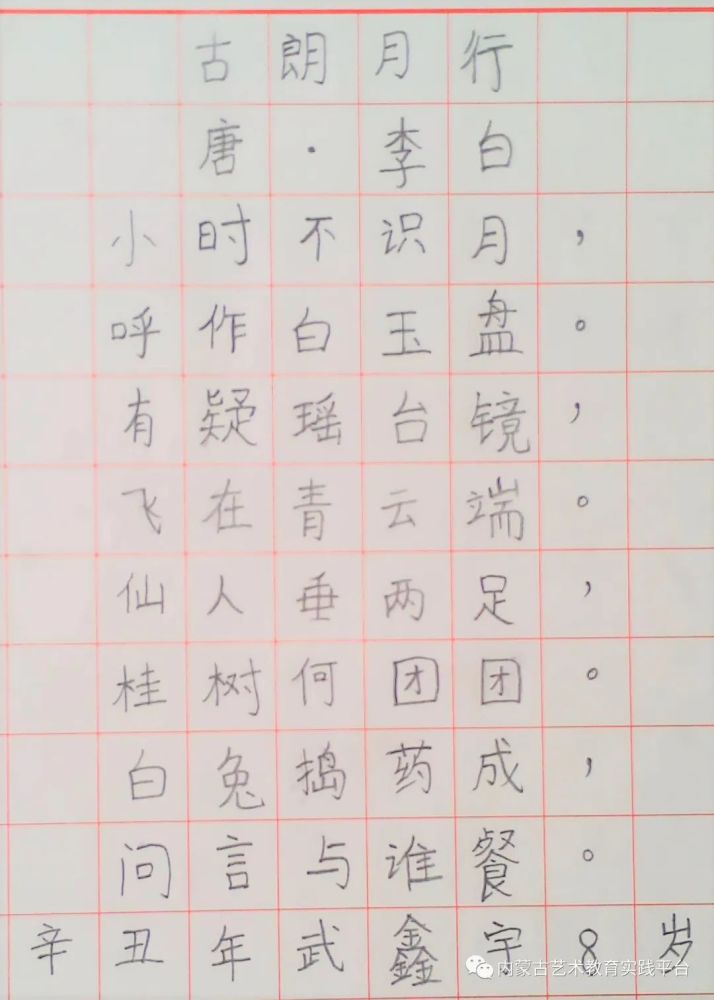 古朗月行
唐·李白
小时不识月，
呼作白玉盘。
有疑瑶台镜，
飞在青云端。
仙人垂两足，
桂树何团团。
白兔捣药成，
问言与谁餐。
辛丑年武鑫宇8岁
内蒙古艺术教育实践平台